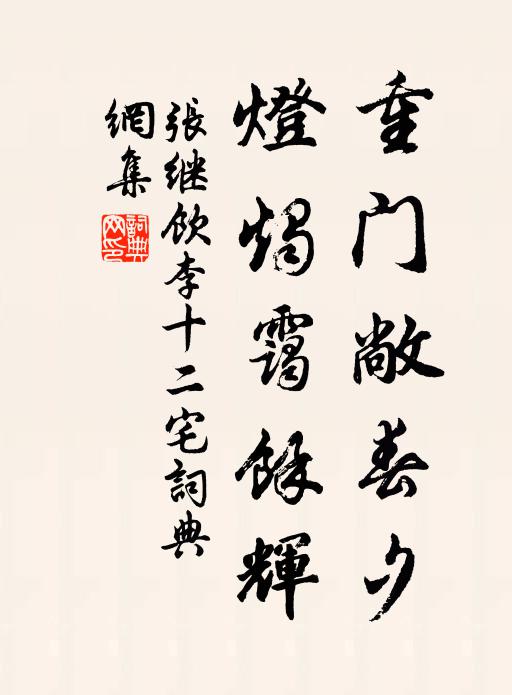 重門敞春夕
燈燭靄餘輝
張继飲李十二宅詞典
網集
詞典網印